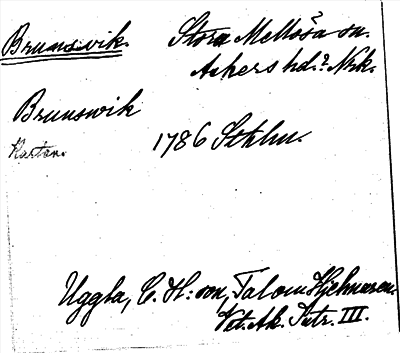 Brunsvik. Stora Mellösa sn.
Askers hd.? Nrk.
Brunswik
Kartan. 1786 Sthlm.
Uggla, C. H:son, Tal om Hjelmaren.
Vet. Ak. Intr. III.